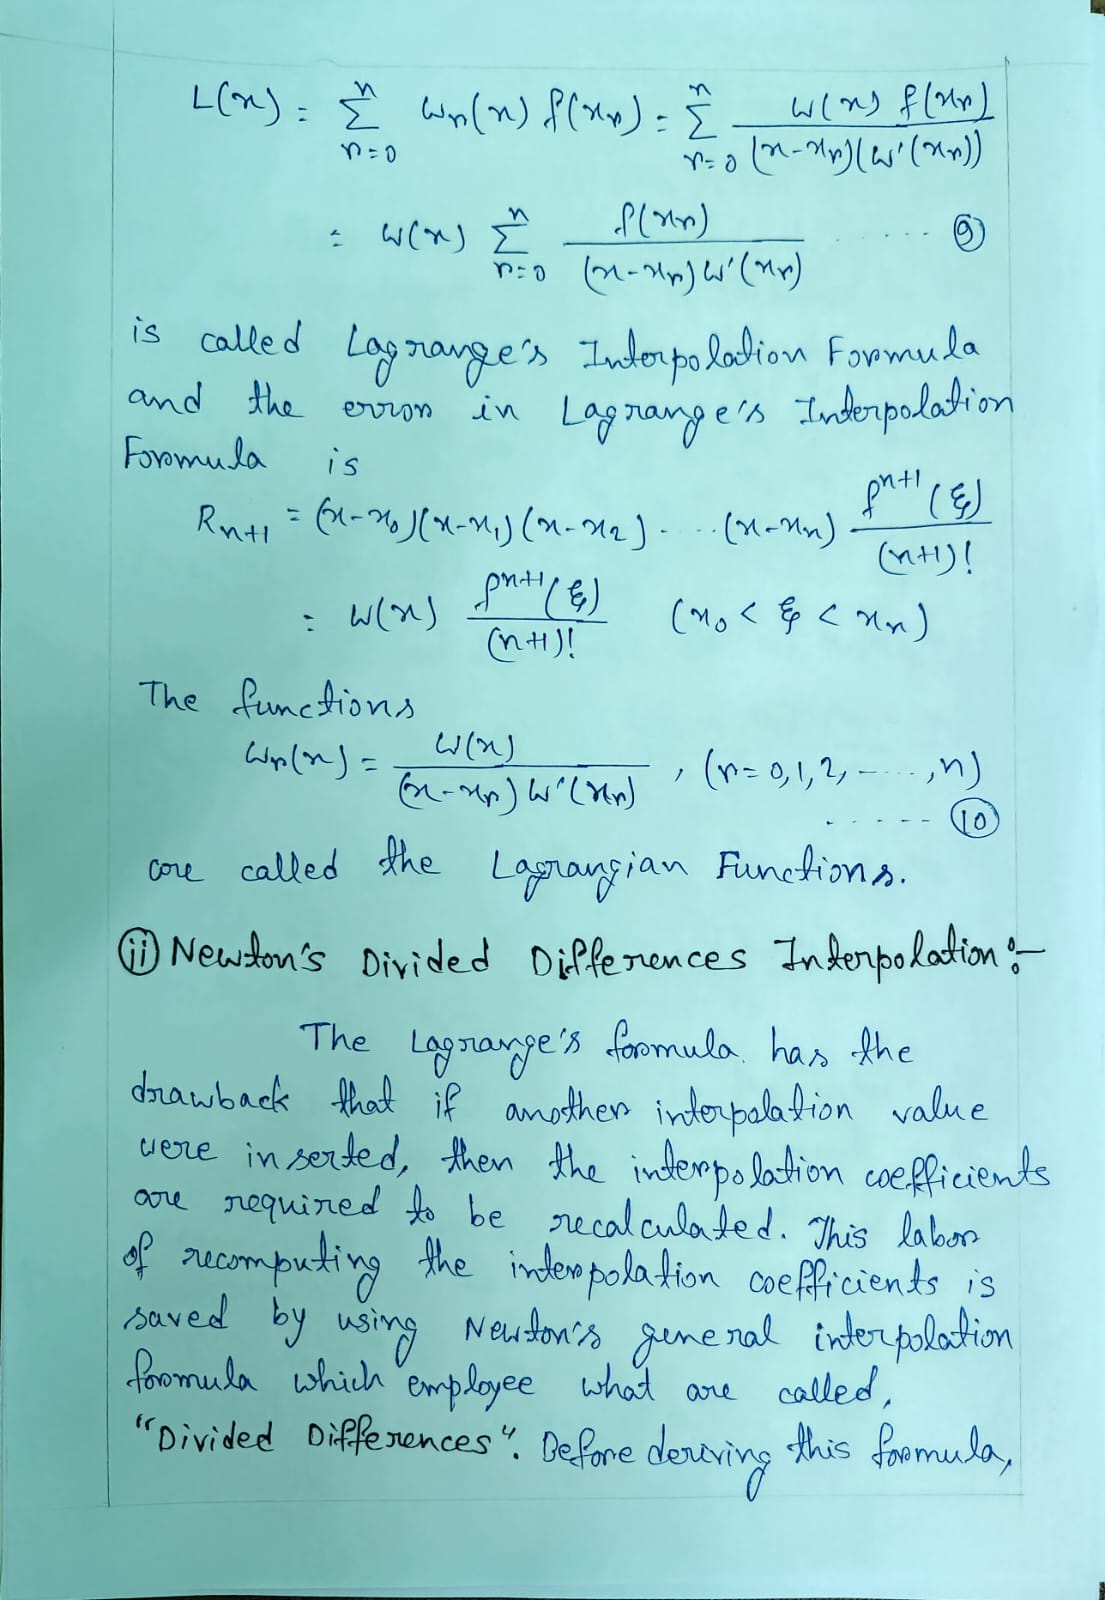 L(x) = Σ_{r=0}^{n} w_r(x) f(x_r) = Σ_{r=0}^{n} w(x) f(x_r) / (x-x_r)(w'(x_r))
= w(x) Σ_{r=0}^{n} f(x_r) / (x-x_r) w'(x_r) ..... ⑨
is called Lagrange's Interpolation Formula
and the error in Lagrange's Interpolation
Formula is
R_{n+1} = (x-x_0)(x-x_1)(x-x_2)-...(x-x_n) f^{n+1}(ξ) / (n+1)!
= w(x) f^{n+1}(ξ) / (n+1)! (x_0 < ξ < x_n)
The functions
w_r(x) = w(x) / (x-x_r) w'(x_r) , (r=0,1,2,-...,n)
..... ⑩
are called the Lagrangian Functions.
ⓘⓘ Newton's Divided Differences Interpolation:-
The Lagrange's formula has the
drawback that if another interpolation value
were inserted, then the interpolation coefficients
are required to be recalculated. This labor
of recomputing the interpolation coefficients is
saved by using Newton's general interpolation
formula which employee what are called,
"Divided Differences". Before deriving this formula,